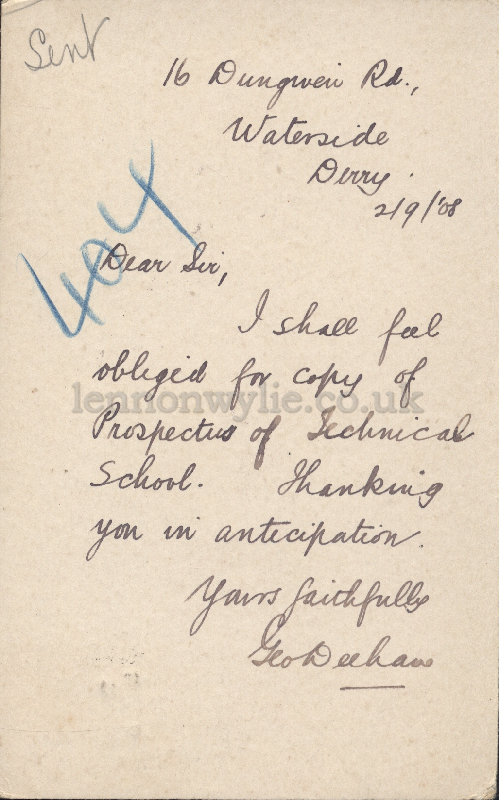 Sent
16 Dungiven Rd.,
Waterside
Derry.
2/9/'08
404
Dear Sir,
I shall feel
obliged for copy of
lennonwylie.co.uk
Prospectus of Technical
School. Thanking
you in anticipation.
Yours faithfully
Geo Deehan